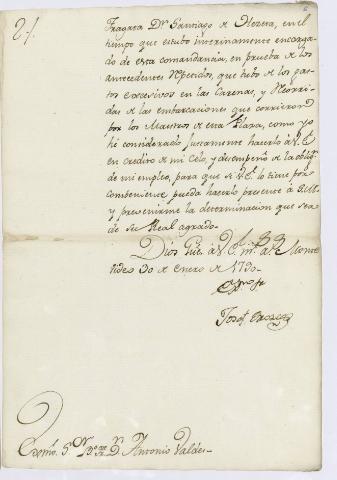 Fragata Dn. Santiago de
tiempo que estubo interinamente encarga-
do de esta comandancia, en prueba de los
antecedentes repetidos, que hubo de los gas-
tos excesivos en las Carenas, y Recorri-
das de las embarcaciones que corrieron
por los Maestros de esta Plaza, como yo
hé considerado justamente hacerlo à V.E.
en credito de mi Celo, y desempeño de la oblign.
de mi empleo, para que si V.E. lo tiene por
combeniente pueda hacerlo presente à S.M.
y prevenirme la determinacion que sea
de su Real agrado.
Dios gue. à V.E. ms. as. Monte-
video 30 de Enero de 1790.
Exmo. Sor.
Josef
Exmo. Sr. Bo. Fr. Dn. Antonio Valdes.